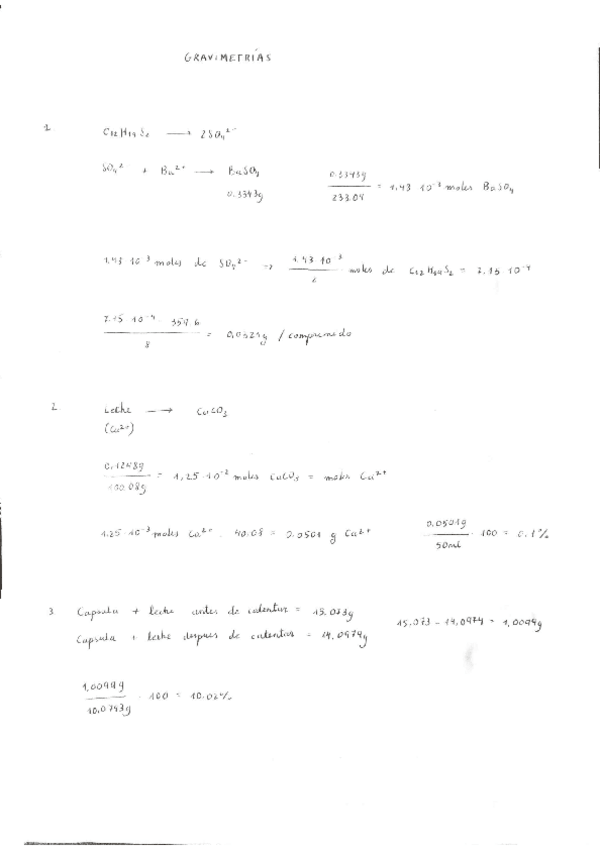 GRAVIMETRÍAS
1.
⟶ 2SO₄²⁻
SO₄²⁻ + Ba²⁺ ⟶ BaSO₄
0.3343g
0.3343g / 233.04 = 1.43 10⁻³ moles BaSO₄
1.43 10⁻³ moles de SO₄²⁻ ⇒ 1.43 10⁻³ / 2 moles de = 7.15 10⁻⁴
/ 8 = g / comprimido
2. Leche ⟶ CaCO₃
(Ca²⁺)
0.1248g / 100.08g = 1,25 10⁻² moles CaCO₃ = moles Ca²⁺
1.25 10⁻³ moles Ca²⁺ . 40.08 = 0.0501 g Ca²⁺
0.0501g / 50ml . 100 = 0.1%
3. Capsula + leche antes de calentar = 15.073g
Capsula + leche despues de calentar = 14.0974g
15.073 - 14,0974 = 1,0099g
1,0099g / 10,0793g . 100 = 10.02%